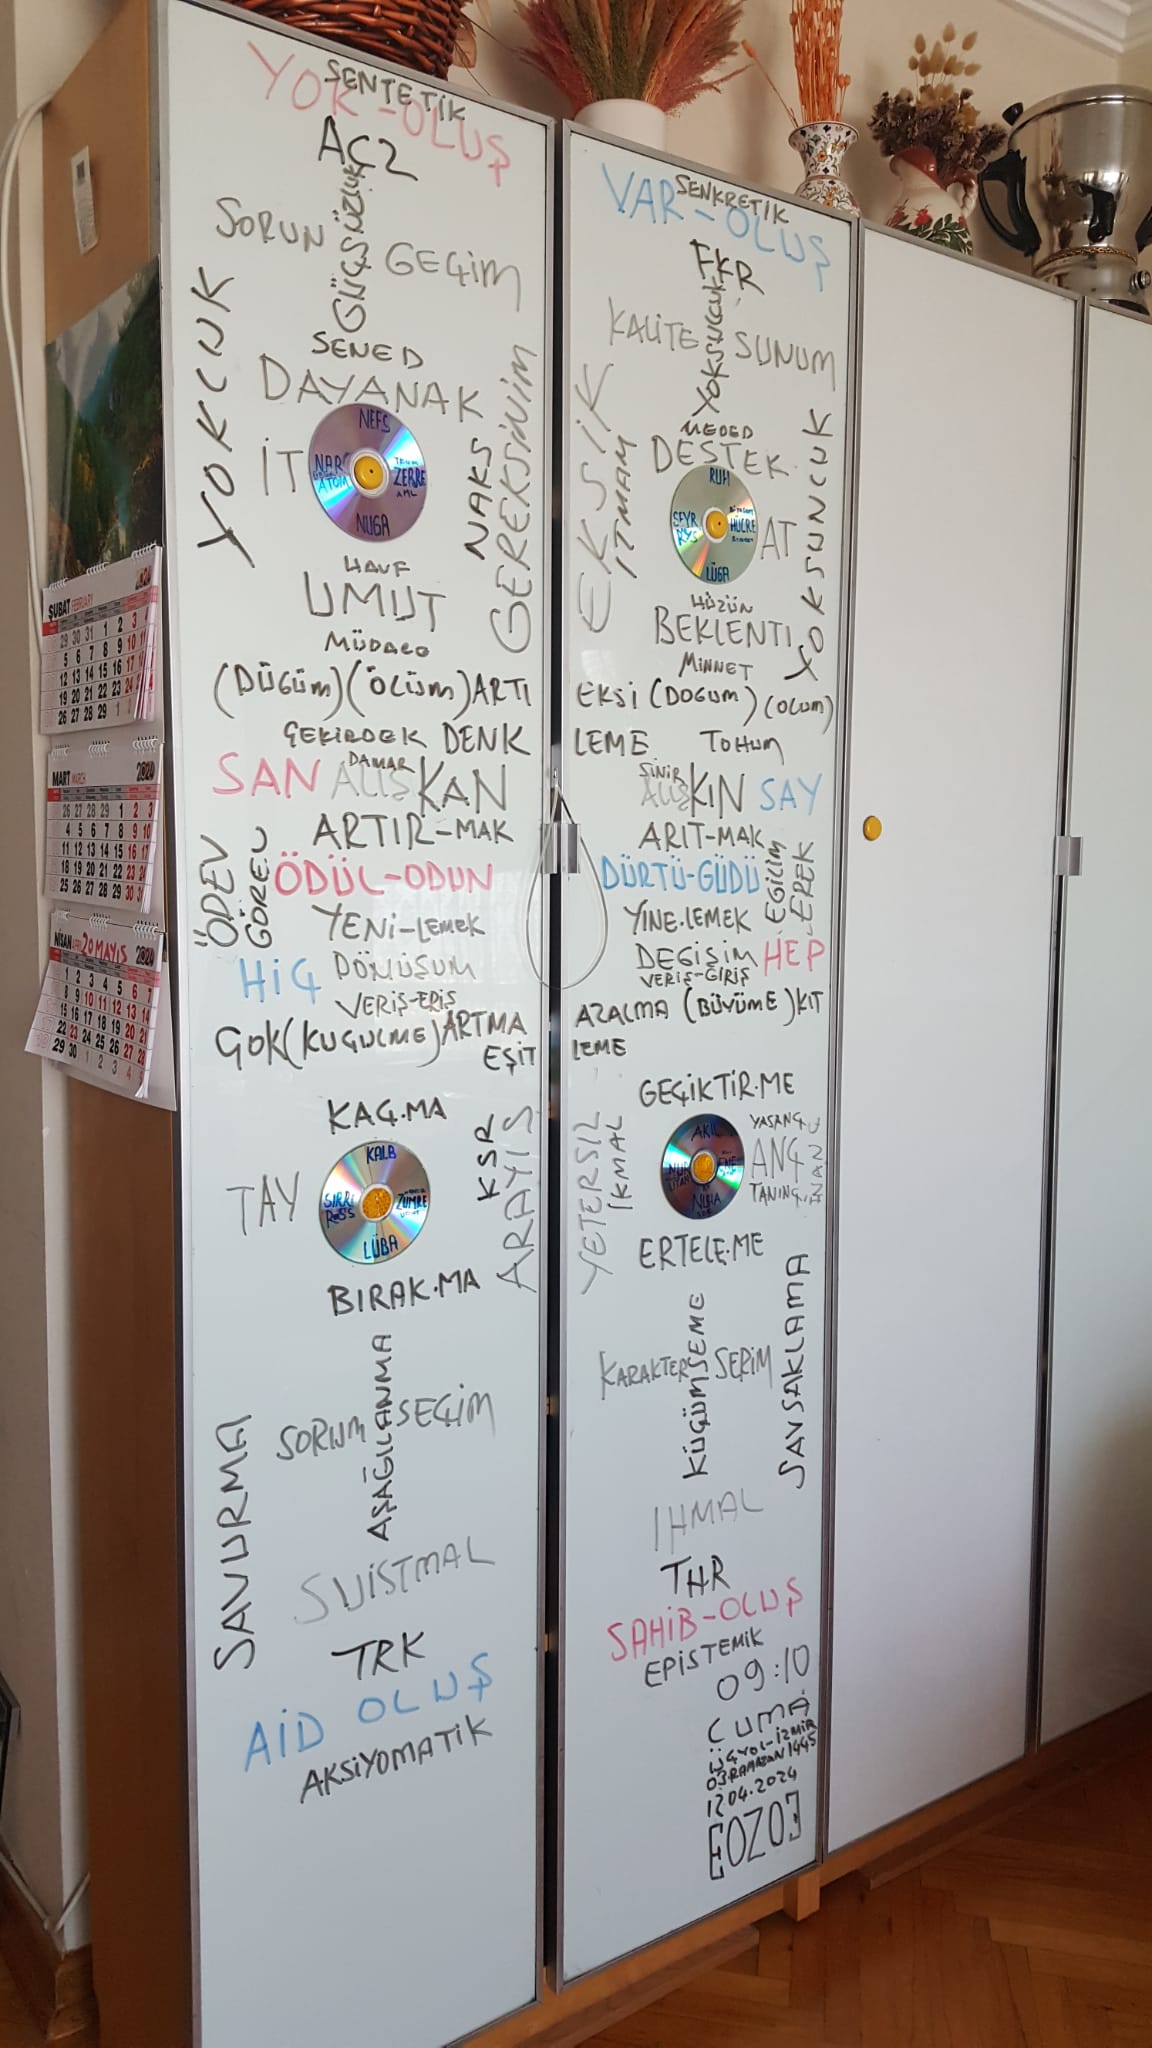 SENTETİK
YOK-OLUŞ
ACZ
GÜÇSÜZLÜK
SORUN
GEÇİM
YOKLUK
SENED
DAYANAK
NEFS
İT
ATOM
ZERRE
NUGA
NAKS
GEREKSİNİM
HAVF
UMUT
(DÜĞÜM)(ÖLÜM)ARTI
ÇEKİRDEK DENK
DAMAR
SAN ALIŞKAN
ARTIR-MAK
ÖDEV
GÖREV
ÖDÜL-ODUN
YENİ-LEMEK
HİÇ DÖNÜŞÜM
VERİŞ-ERİŞ
ÇOK(KÜÇÜLME)ARTMA
EŞİT
KAÇ.MA
KALB
TAY
SIRR
ZÜMRE
LÜBA
KSR
ARAYIŞ
BIRAK.MA
AŞAĞILANMA
SORUM
SEÇİM
SAVURMA
SUİSTMAL
TRK
AİD OLUŞ
AKSİYOMATİK
SENKRETİK
VAR-OLUŞ
FKR
YOKSULLUK
KALİTE
SUNUM
EKSİK
İTMAM
MEDED
DESTEK
RUH
SEYR
HÜCRE
LÜGA
AT
YOKSUNLUK
HÜZÜN
BEKLENTİ
MİNNET
EKSİ (DOĞUM) (OLUM)
LEME TOHUM
SİNİR
ALIŞKIN SAY
ARIT-MAK
DÜRTÜ-GÜDÜ
EĞİLİM
EREK
YİNE.LEMEK
DEĞİŞİM HEP
VERİŞ-GİRİŞ
AZALMA (BÜYÜME)KIT
LEME
GEÇİKTİR.ME
AKIL
NUR
NUHA
YAŞANÇ
ANÇ
TANINÇ
İNANÇ
YETERSİZ
İKMAL
ERTELE.ME
KÜÇÜMSEME
KARAKTER
SERİM
SAVSAKLAMA
İHMAL
THR
SAHİB-OLUŞ
EPİSTEMİK
09:10
CUMA
ÜÇYOL-İZMİR
03 RAMAZAN 1445
12.04.2024
ŞUBAT FEBRUARY
29 30 31 1 2 3 4
5 6 7 8 9 10 11
12 13 14 15 16 17 18
19 20 21 22 23 24 25
26 27 28 29 1 2 3
MART MARCH 2024
26 27 28 29 1 2 3
4 5 6 7 8 9 10
11 12 13 14 15 16 17
18 19 20 21 22 23 24
25 26 27 28 29 30 31
NİSAN 20 MAYIS 2024
1 2 3 4 5 6 7
8 9 10 11 12 13 14
15 16 17 18 19 20 21
22 23 24 25 26 27 28
29 30 1 2 3 4 5